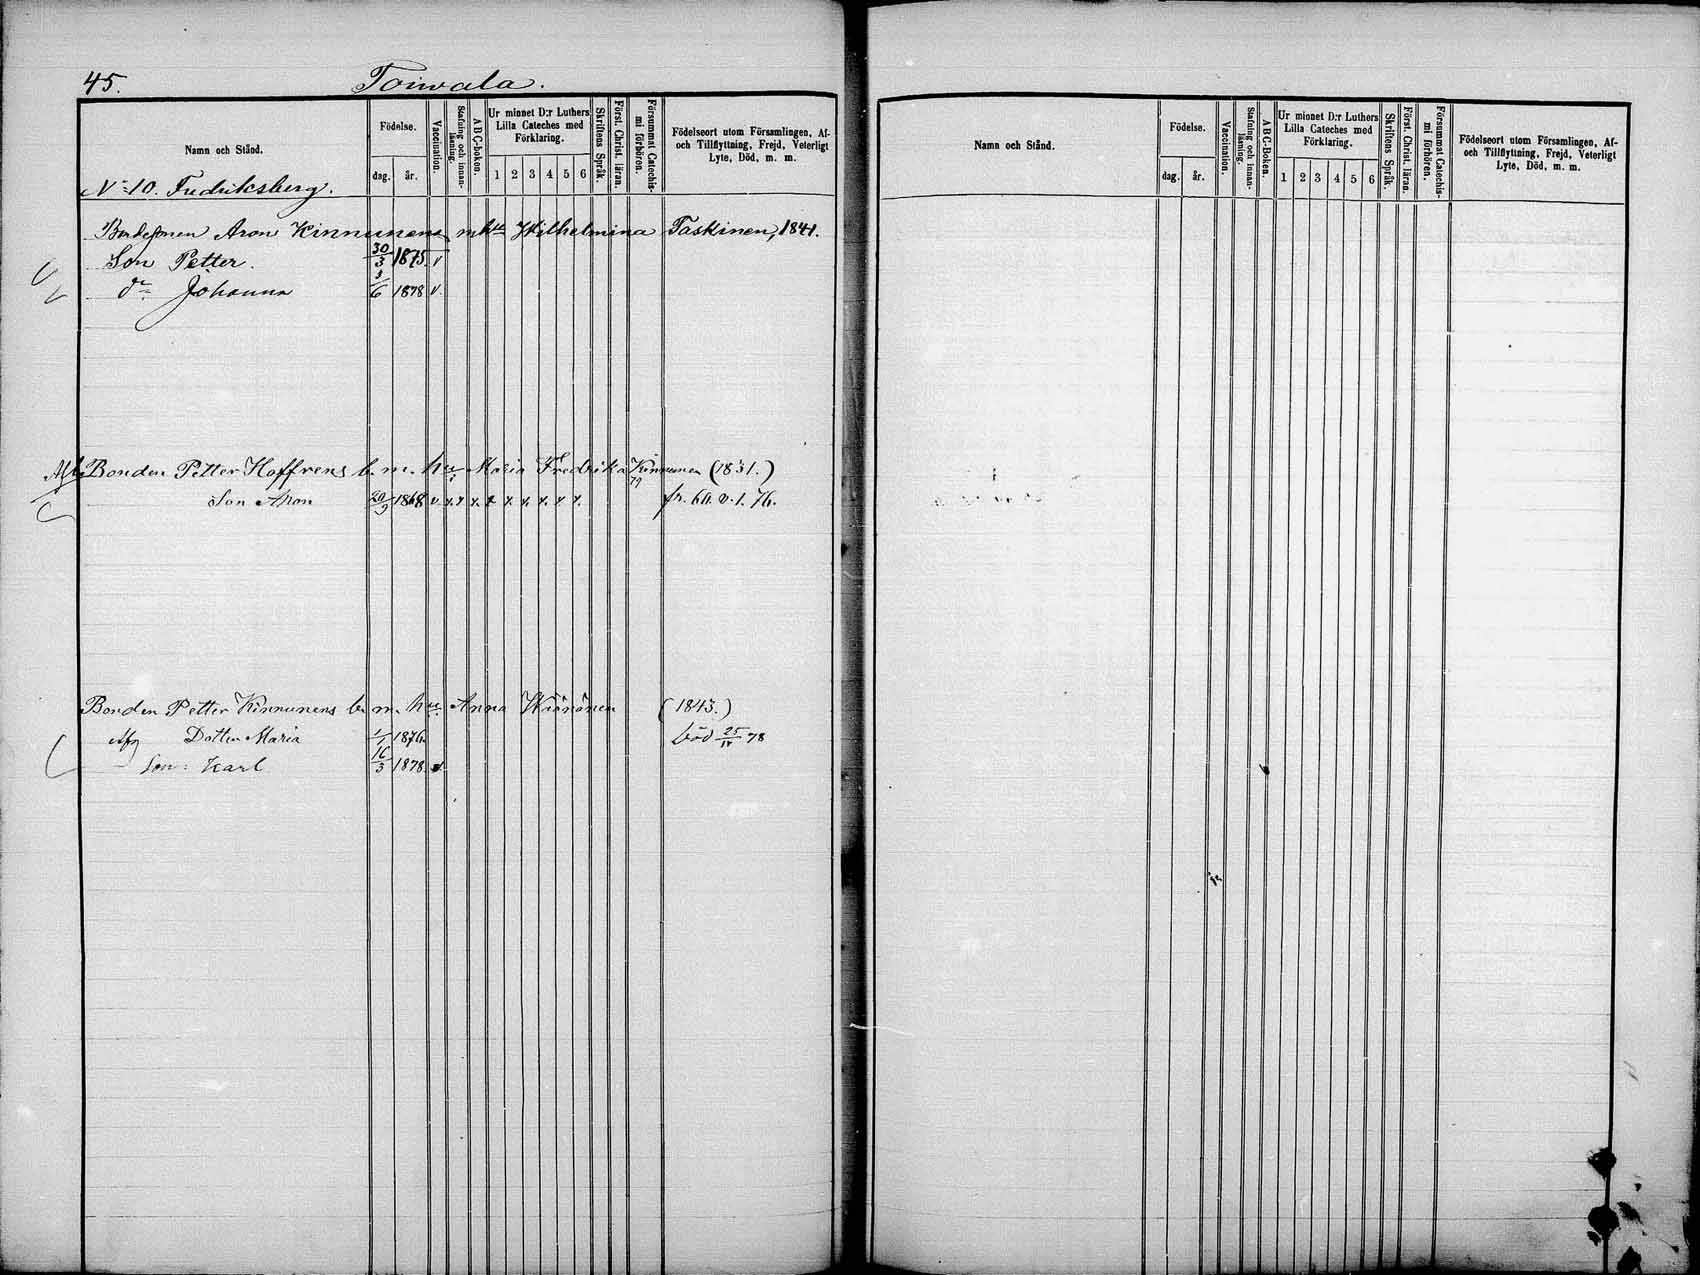 45. Toiwala.
Namn och Stånd.
Födelse.
dag. år.
Vaccination.
Stafning och innan-läsning.
A B C-boken.
Ur minnet D:r Luthers Lilla Cateches med Förklaring.
1 2 3 4 5 6
Skriftens Språk.
Först. Christ. läran.
Försummat Catechis-mi förhören.
Födelseort utom Församlingen, Af- och Tillflyttning, Frejd, Veterligt Lyte, Död, m. m.
N:o 10. Fredriksberg.
Bondesonen Aron Kinnunens m h:u Wilhelmina Taskinen, 1841.
Son Petter. 30/3 1875. v
d:o Johanna 3/6 1878 v.
Bonden Petter Hoffrens b. m. h:u Maria Fredrika Kinnunen (1831.)
Son Aron 20/9 1868 v. x. x x. x x. x. x. x x. 79 fr. 60. v. 1. 76.
Bonden Petter Kinnunens b. m. h:u Anna Wäänänen (1843.)
Dotter Maria 1/1 1876. död 25/12 78
Son: Karl 16/3 1878. v
Namn och Stånd.
Födelse.
dag. år.
Vaccination.
Stafning och innan-läsning.
A B C-Boken.
Ur minnet D:r Luthers Lilla Cateches med Förklaring.
1 2 3 4 5 6
Skriftens Språk.
Först. Christ. läran.
Försummat Catechis-mi förhören.
Födelseort utom Församlingen, Af- och Tillflyttning, Frejd, Veterligt Lyte, Död, m. m.